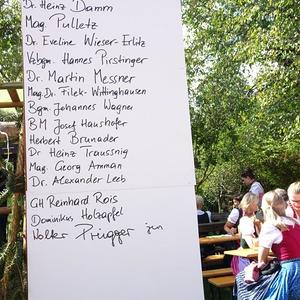 Dr. Heinz Damm
Mag. Pulletz
Dr. Eveline Wieser-Erlitz
Vzbgm. Hannes Pirstinger
Dr. Martin Messner
Mag. Dr. Filek-Wittinghausen
Bgm. Johannes Wagner
BM Josef Haushofer
Herbert Brunader
Dr Heinz Traussnig
Mag. Georg Amman
Dr. Alexander Leeb
GH Reinhard Rois
Dominikus Holzapfel
Volker Prügger jun